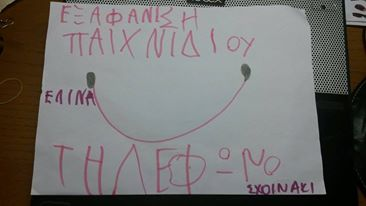 ΕΞΑΦΑΝΙΣΗ
ΠΑΙΧΝΙΔΙΟΥ
ΕΛΙΝΑ
ΤΗΛΕΦΩΝΟ
ΣΧΟΙΝΑΚΙ